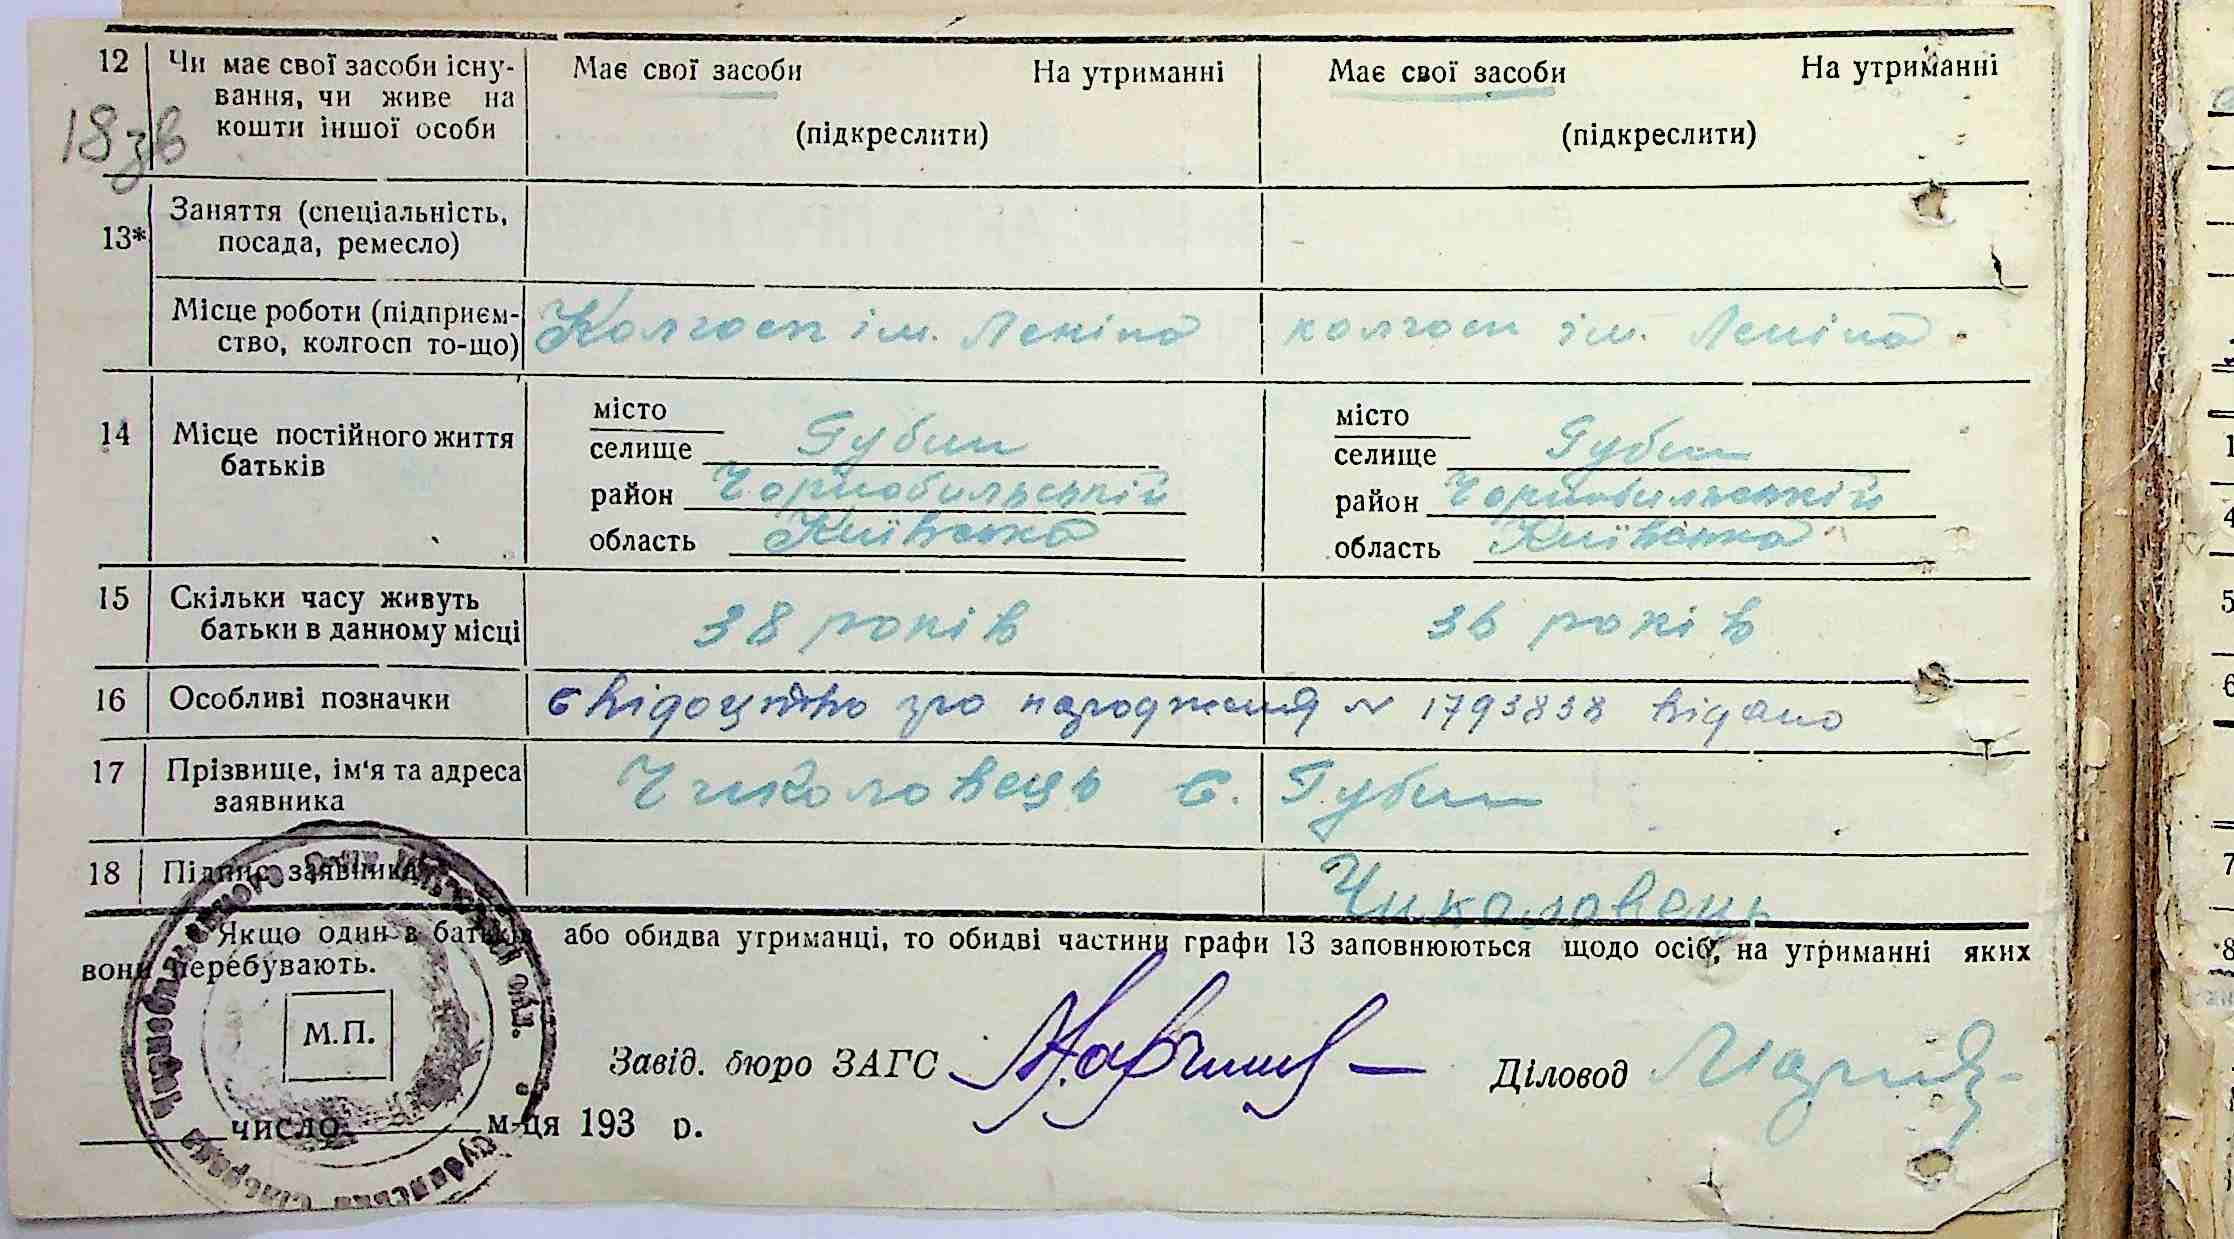 12 Чи має свої засоби існу- Має свої засоби На утриманні Має свої засоби На утриманні
вання, чи живе на
кошти іншої особи (підкреслити) (підкреслити)
18зв
13* Заняття (спеціальність,
посада, ремесло)
Місце роботи (підприєм- Колгосп ім. Леніна колгосп ім. Леніна
ство, колгосп то-що)
14 Місце постійного життя
батьків
місто місто
селище Губин селище Губин
район Чорнобильській район Чорнобильській
область Київська область Київська
15 Скільки часу живуть
батьки в данному місці 38 років 36 років
16 Особливі позначки Свідоцтво про народження № 1793838 видано
17 Прізвище, ім'я та адреса
заявника Чиколовець С. Губин
18 Підпис заявника Чиколовець
Якщо один з батьків або обидва утриманці, то обидві частини графи 13 заповнюються щодо осіб, на утриманні яких
вони перебувають.
М.П.
Завід. бюро ЗАГС Діловод
число м-ця 193 р.
Чорнобильського р-ну Київської обл.
Губинська сільрада